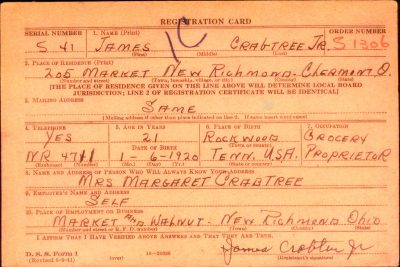 REGISTRATION CARD
SERIAL NUMBER 1. NAME (Print) ORDER NUMBER
S 41 JAMES 1C CRABTREE JR. S 1306
(First) (Middle) (Last)
2. PLACE OF RESIDENCE (Print)
205 MARKET NEW RICHMOND CLERMONT O.
(Number and street) (Town, township, village, or city) (County) (State)
[THE PLACE OF RESIDENCE GIVEN ON THE LINE ABOVE WILL DETERMINE LOCAL BOARD
JURISDICTION; LINE 2 OF REGISTRATION CERTIFICATE WILL BE IDENTICAL]
3. MAILING ADDRESS
SAME
[Mailing address if other than place indicated on line 2. If same insert word same]
4. TELEPHONE 5. AGE IN YEARS 6. PLACE OF BIRTH 7. OCCUPATION
YES 21 ROCKWOOD GROCERY
DATE OF BIRTH (Town or county)
NR 4711 1-6-1920 TENN. USA. PROPRIETOR
8. NAME AND ADDRESS OF PERSON WHO WILL ALWAYS KNOW YOUR ADDRESS
MRS MARGARET CRABTREE
9. EMPLOYER'S NAME AND ADDRESS
SELF
10. PLACE OF EMPLOYMENT OR BUSINESS
MARKET AND WALNUT - NEW RICHMOND OHIO
(Number and street or R. F. D. number) (Town) (County) (State)
I AFFIRM THAT I HAVE VERIFIED ABOVE ANSWERS AND THAT THEY ARE TRUE.
James Crabtree Jr
D. S. S. Form 1 (over) (Registrant's signature)